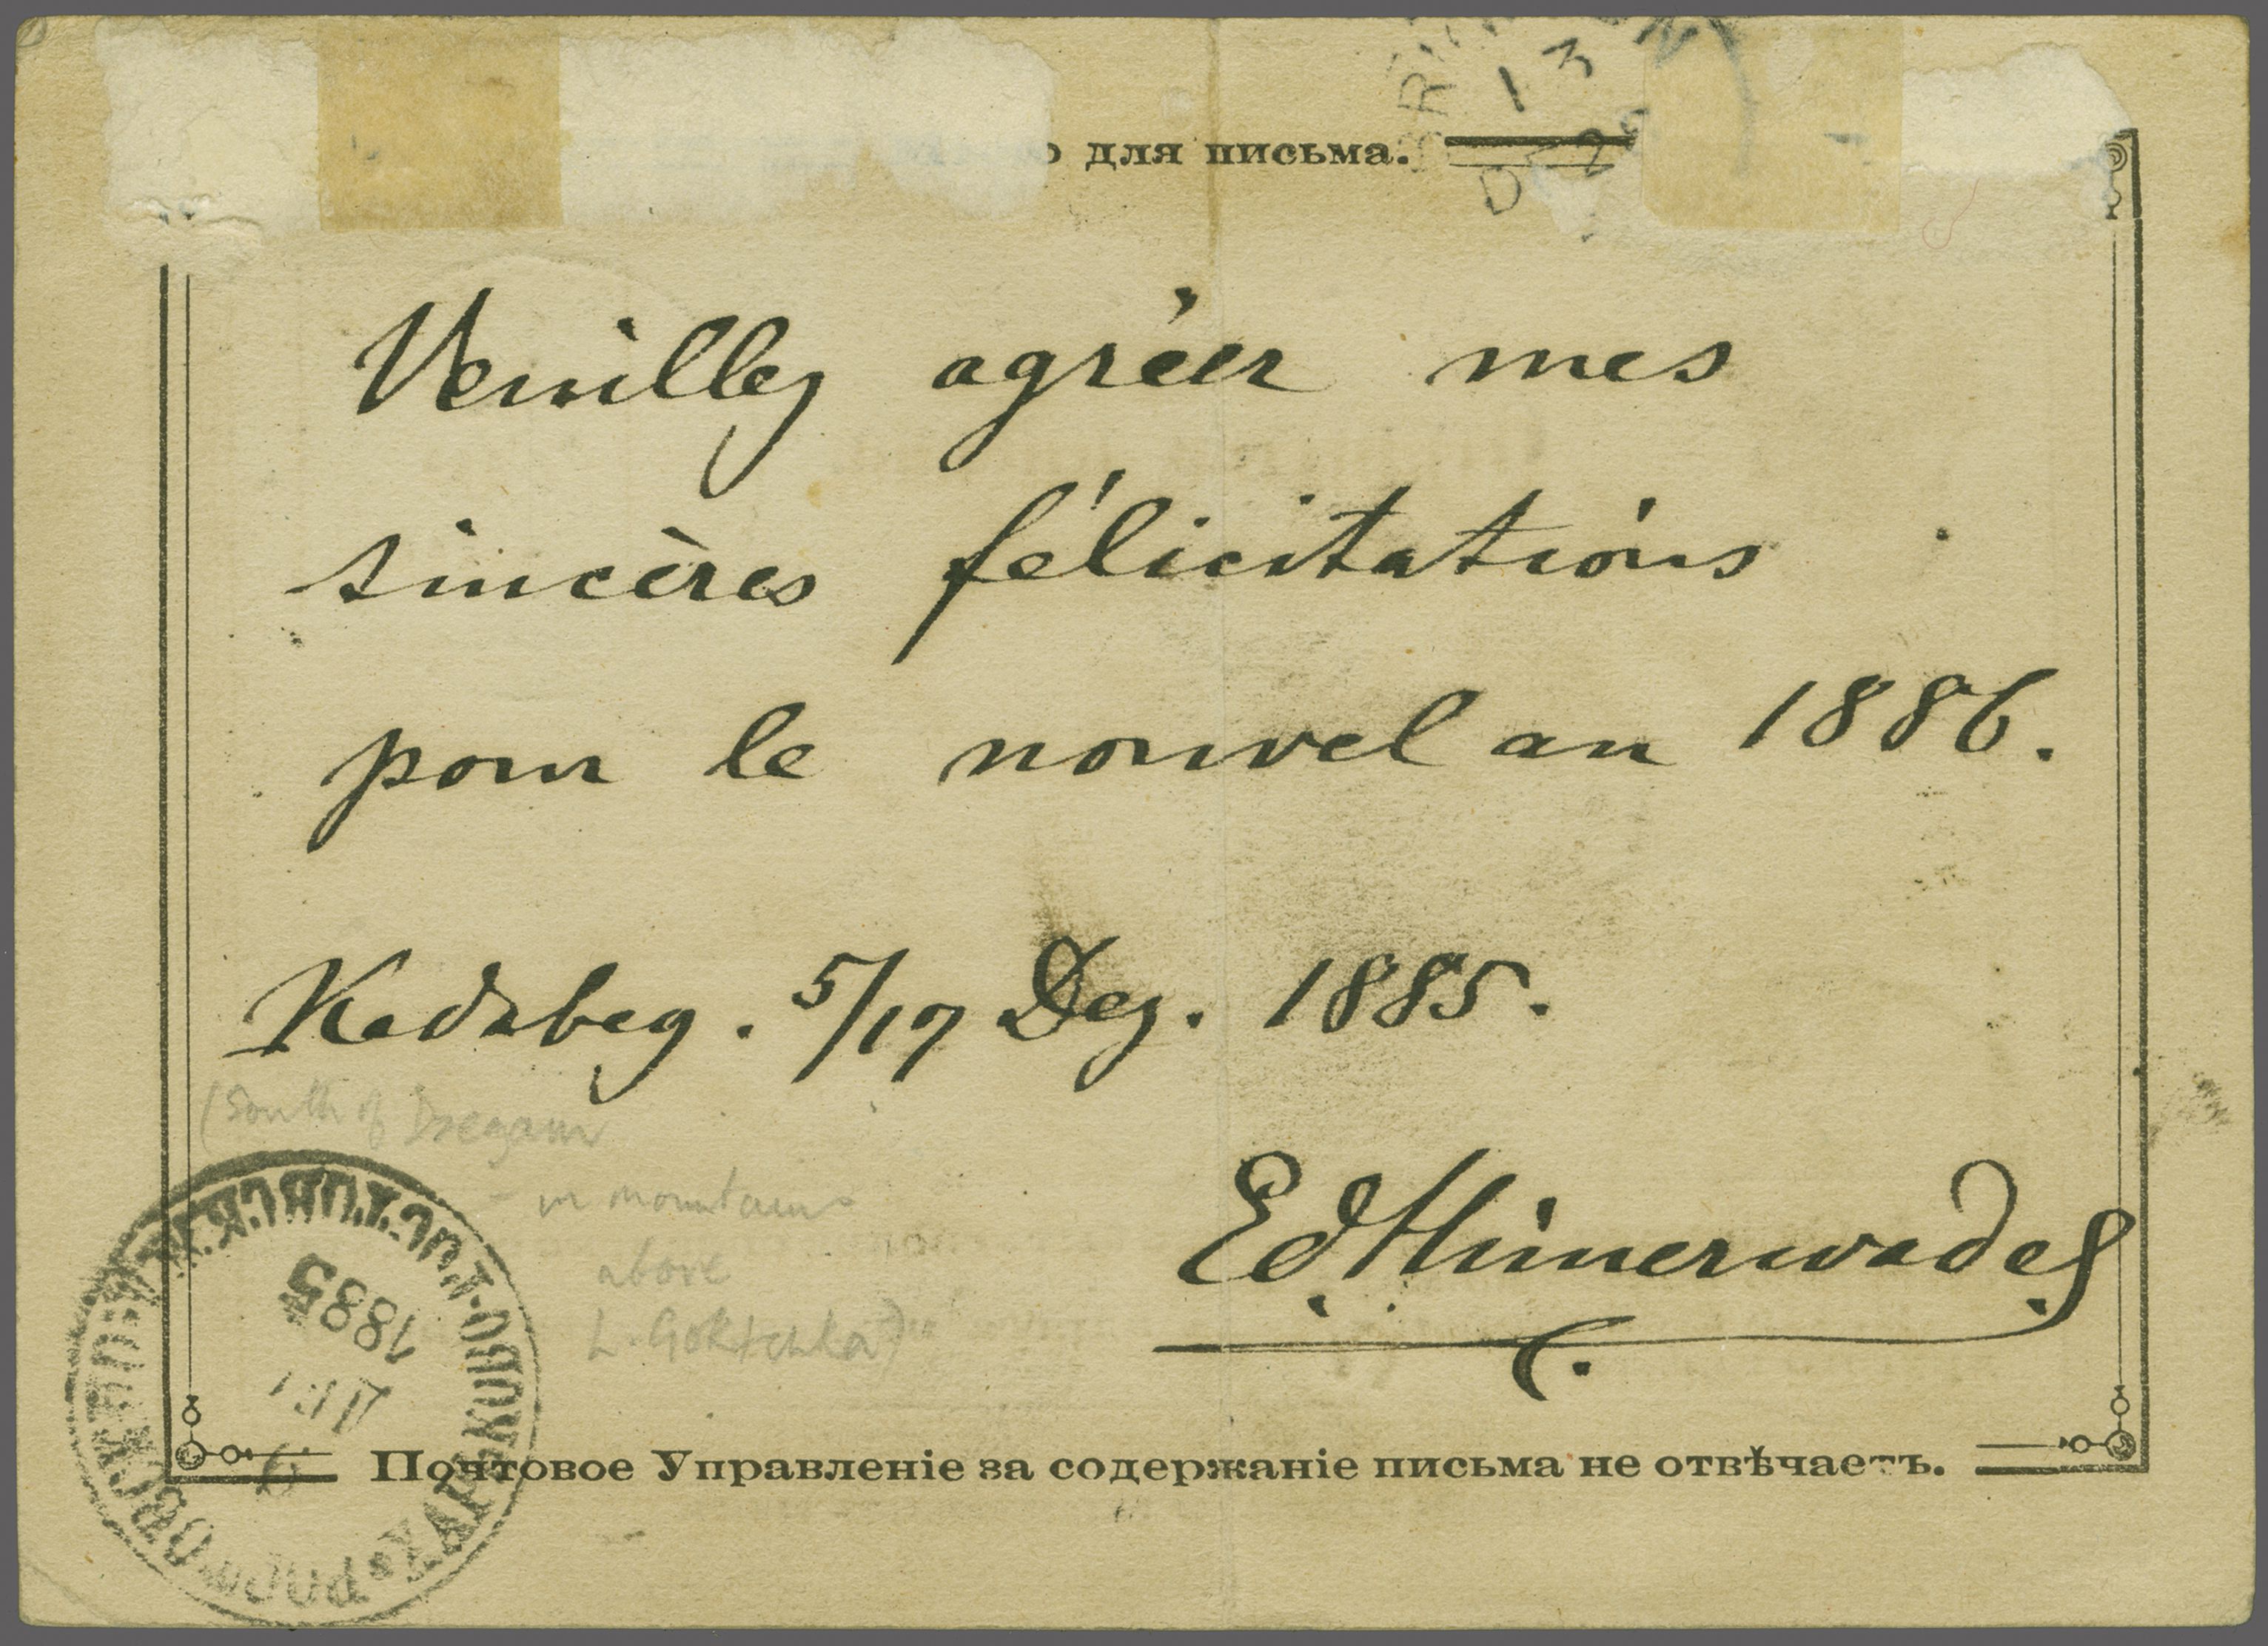 для письма.
13
Veuillez agréer mes
sincères félicitations
pour le nouvel an 1886.
Kedabeg. 5/17 Dez. 1885.
(South of
in mountains
above
L. Goktchka)
Ed Himerwadel
1885
Почтовое Управленіе за содержаніе письма не отвѣчаетъ.